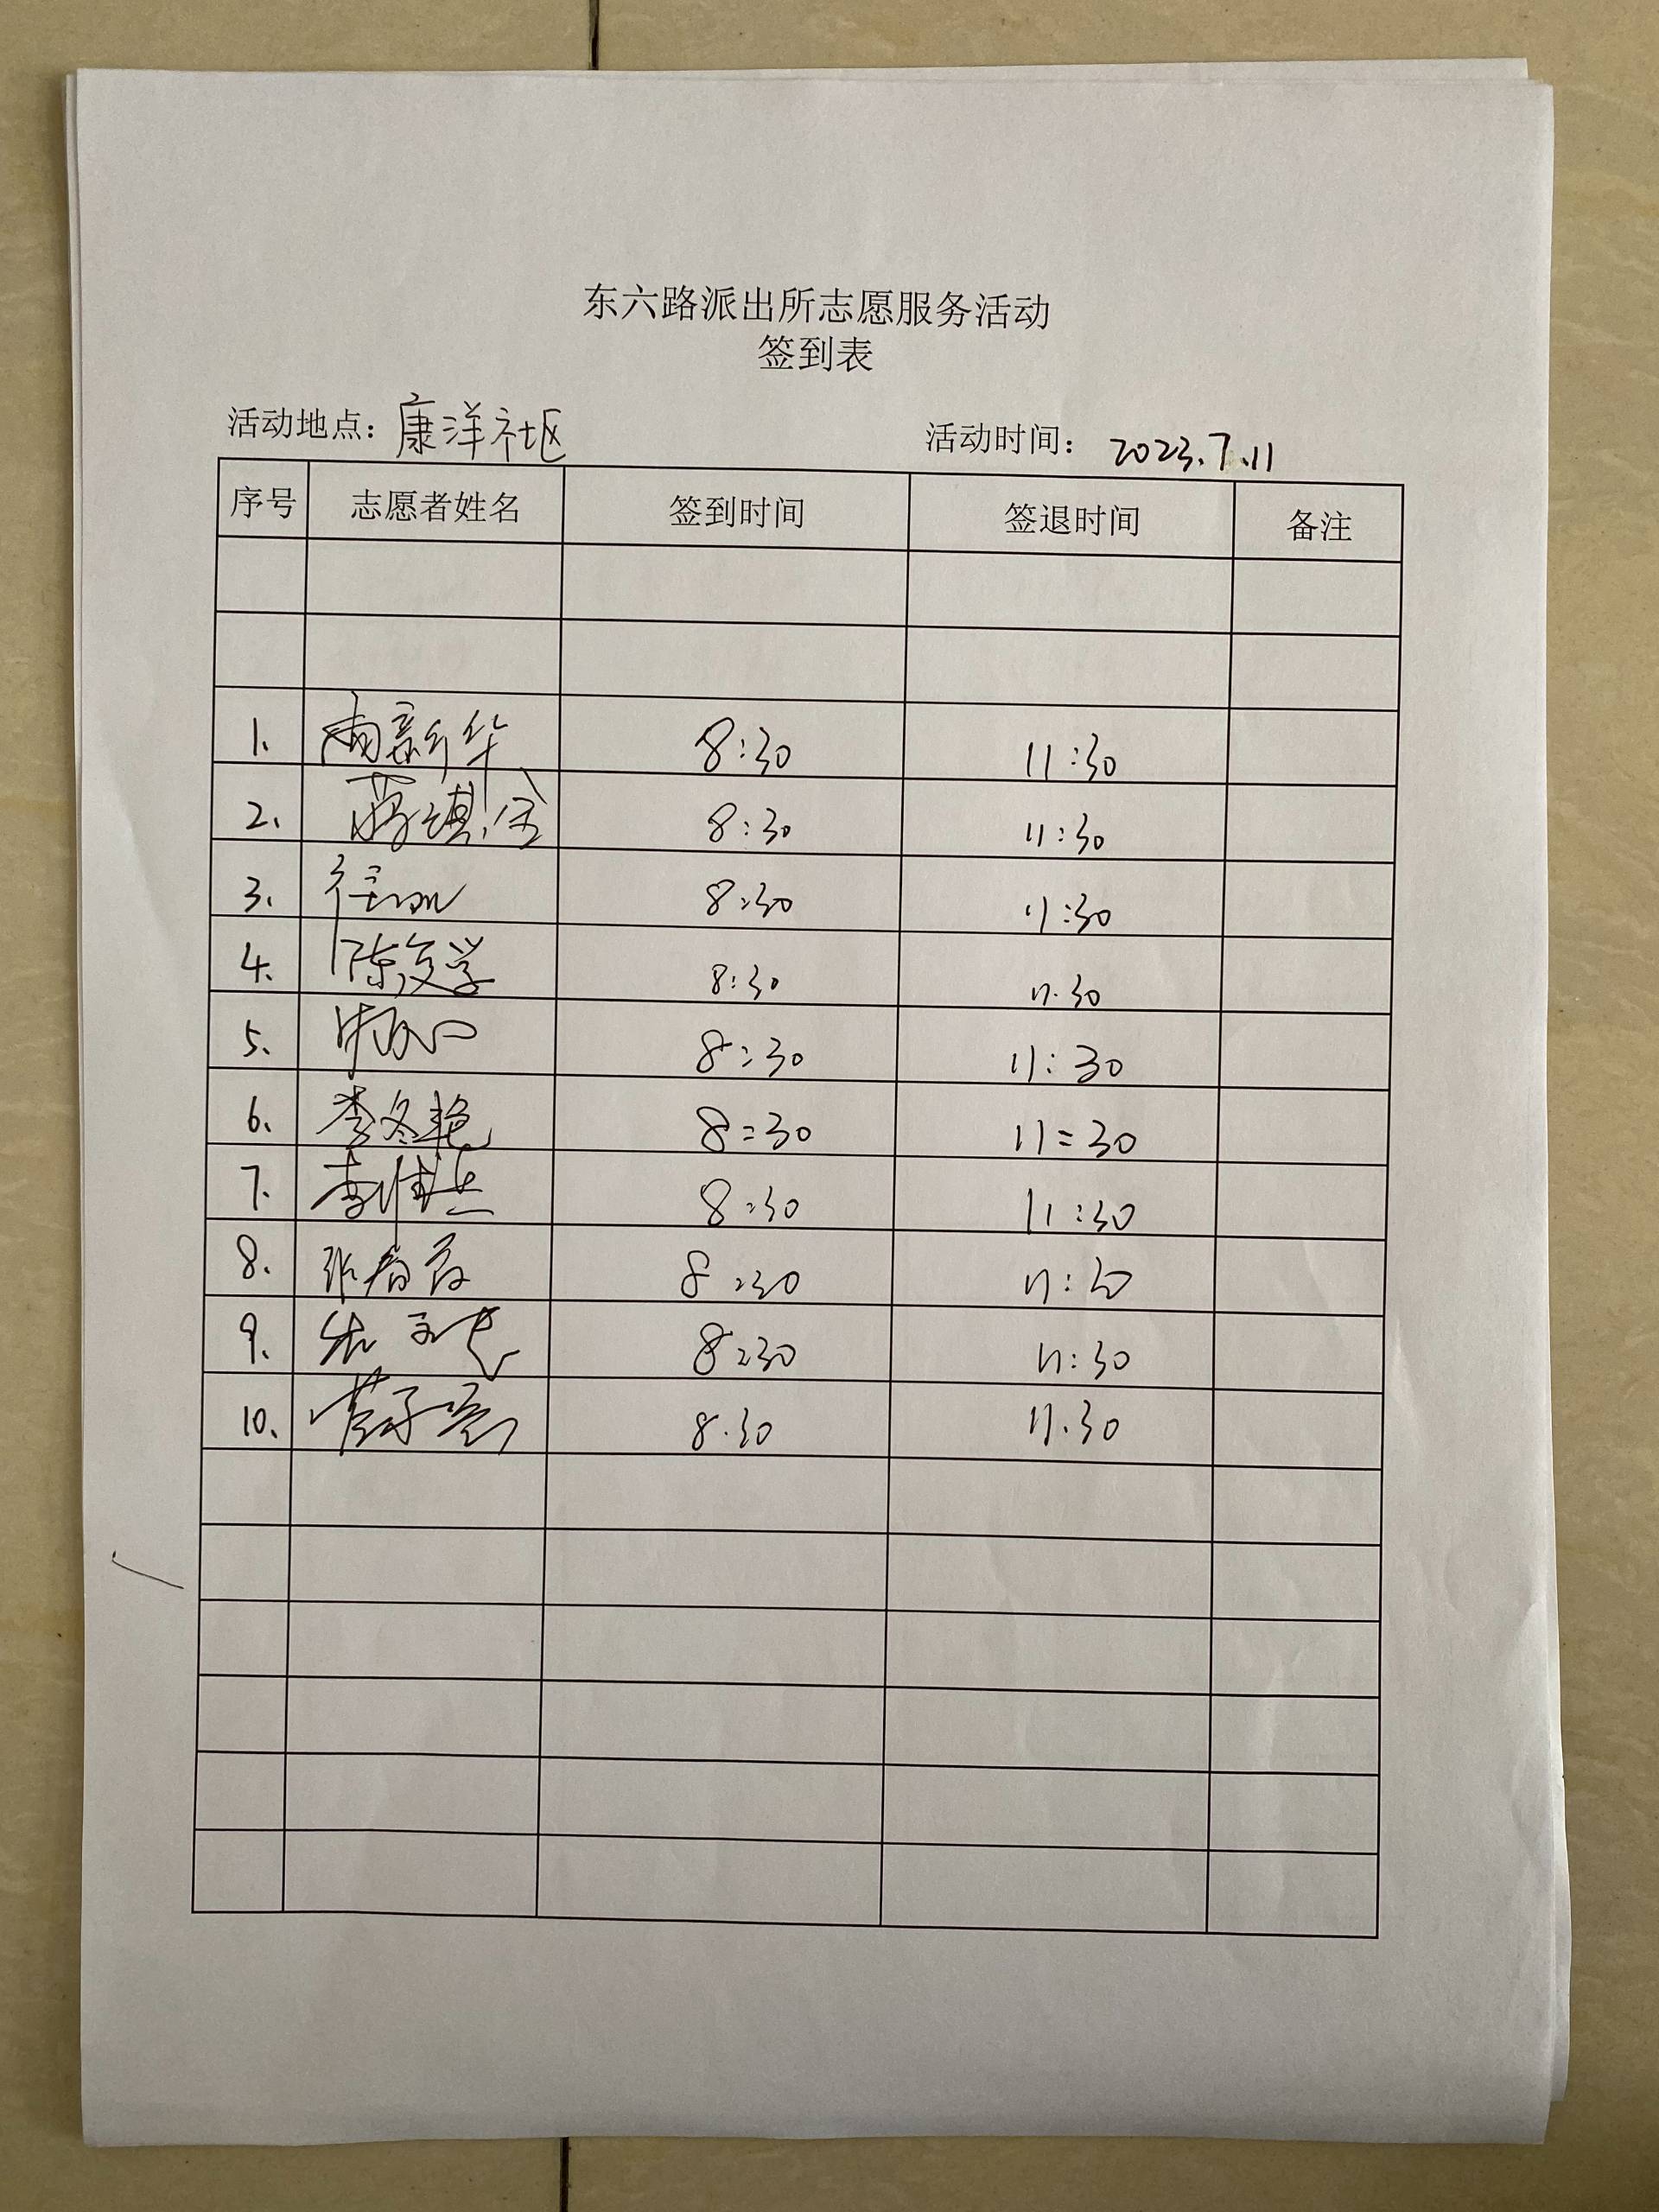 东六路派出所志愿服务活动
签到表
活动地点：康洋社区 活动时间：2023.7.11
序号 志愿者姓名 签到时间 签退时间 备注
1. 8:30 11:30
2. 8:30 11:30
3. 8:30 11:30
4. 陈文学 8:30 11.30
5. 8:30 11:30
6. 李冬艳 8:30 11:30
7. 8:30 11:30
8. 8:30 11:30
9. 8:30 11:30
10. 8.30 11.30